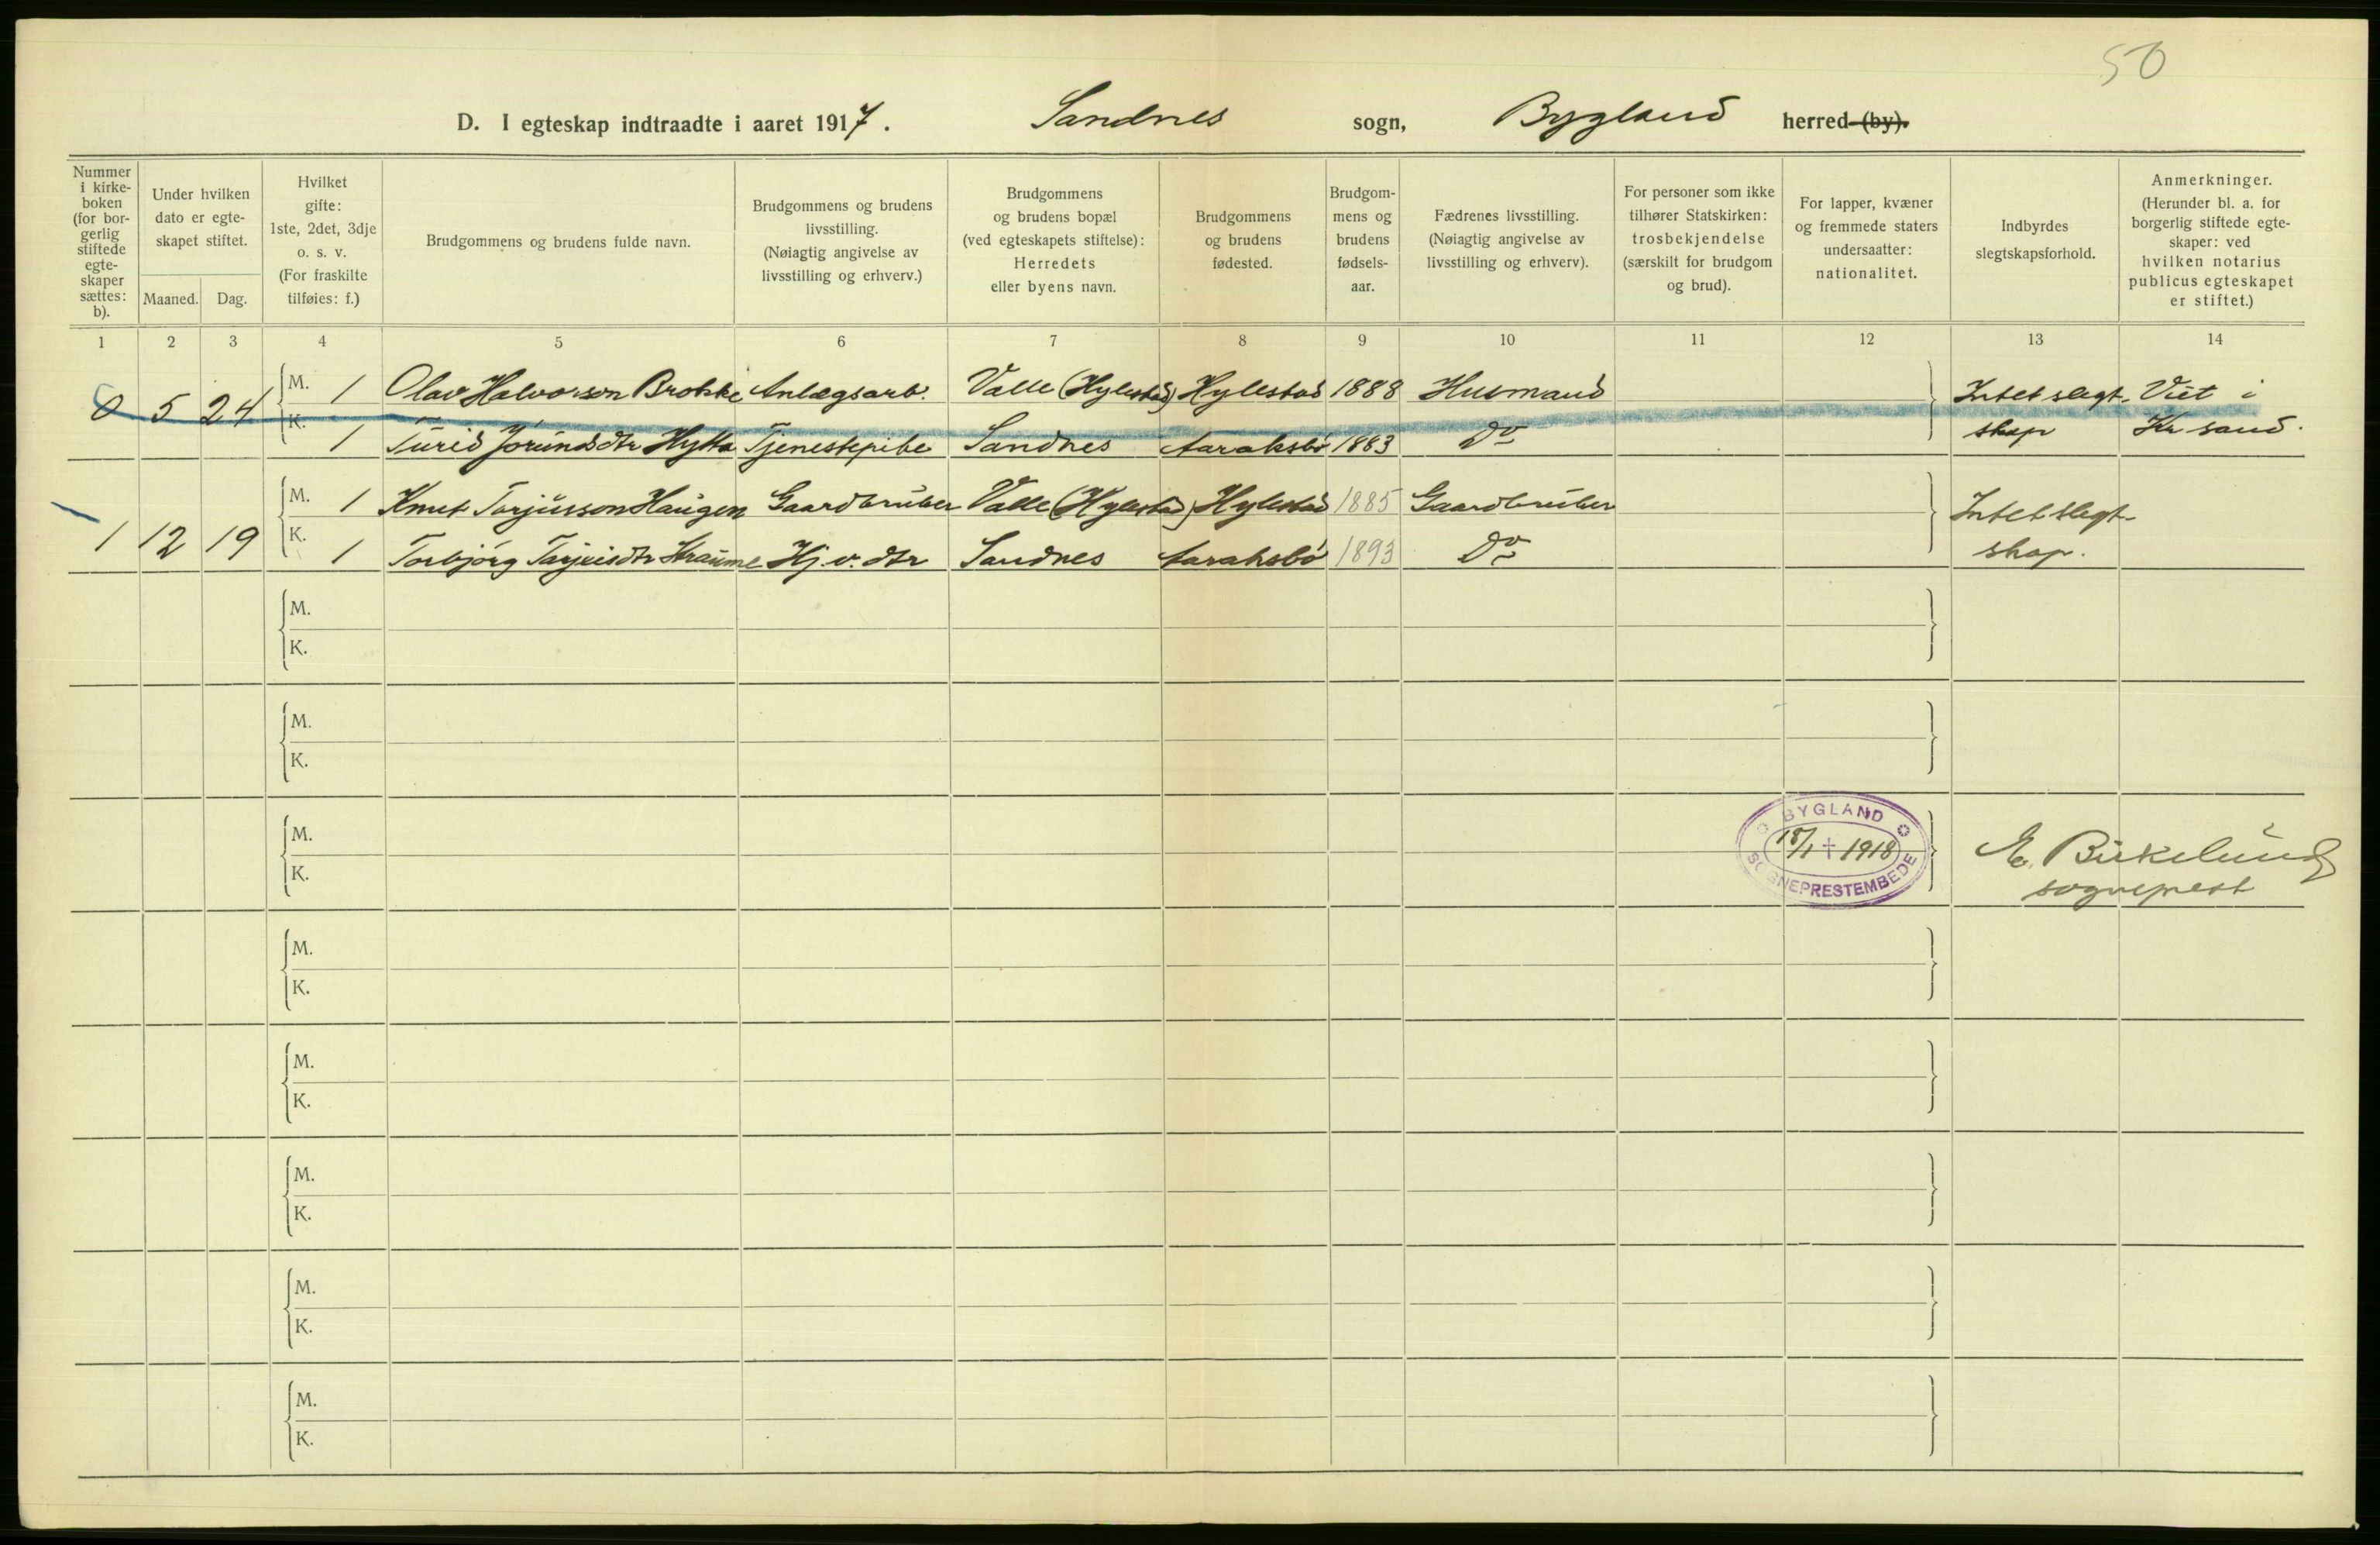 50
D. I egteskap indtraadte i aaret 1917. Sandnes sogn, Bygland herred (by).
Nummer i kirke-boken (for bor-gerlig stiftede egte-skaper sættes: b).
Under hvilken dato er egte-skapet stiftet.
Maaned. Dag.
Hvilket gifte: 1ste, 2det, 3dje o. s. v. (For fraskilte tilføies: f.)
Brudgommens og brudens fulde navn.
Brudgommens og brudens livsstilling. (Nøiagtig angivelse av livsstilling og erhverv.)
Brudgommens og brudens bopæl (ved egteskapets stiftelse): Herredets eller byens navn.
Brudgommens og brudens fødested.
Brudgom-mens og brudens fødsels-aar.
Fædrenes livsstilling. (Nøiagtig angivelse av livsstilling og erhverv).
For personer som ikke tilhører Statskirken: trosbekjendelse (særskilt for brudgom og brud).
For lapper, kvæner og fremmede staters undersaatter: nationalitet.
Indbyrdes slegtskapsforhold.
Anmerkninger. (Herunder bl. a. for borgerlig stiftede egte-skaper: ved hvilken notarius publicus egteskapet er stiftet.)
1 2 3 4 5 6 7 8 9 10 11 12 13 14
0 5 24 M. 1 Olav Halvorson Brokke Anlægsarb. Valle (Hylestad) Hylestad 1888 Husmand Intet slegt- Viet i
K. 1 Turid Jorundsdtr Hytta Tjenestepike Sandnes Aaraksbø 1883 Do skap Kr sand.
M. 1 Knut Torjusson Haugen Gaardbruker Valle (Hylestad) Hylestad 1885 Gaardbruker Intet slegt-
1 12 19 K. 1 Torbjørg Tarjeisdtr Straume Hj. v. dtr Sandnes Aaraksbø 1893 Do skap.
M.
K.
M.
K.
M.
K.
BYGLAND
18/1 1918
SOGNEPRESTEMBEDE
E. Birkelund
sogneprest
M.
K.
M.
K.
M.
K.
M.
K.
M.
K.